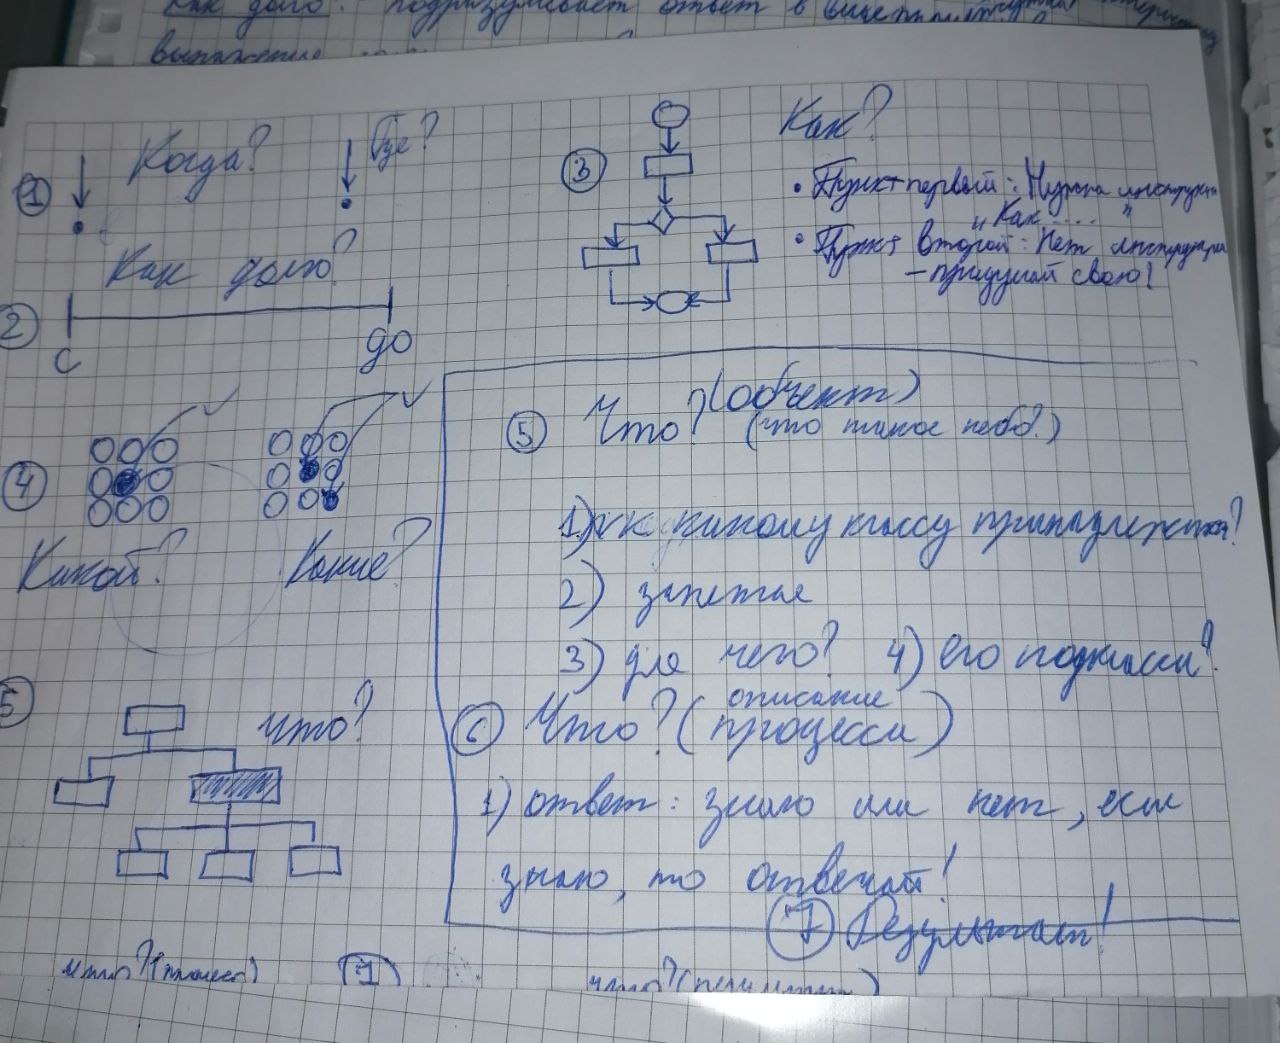 Как долго: подразумевает ответ в виде
выражение
Когда?
Где?
1
Как долго?
2
с
до
3
Как?
• Пункт первый: Нужна инструкция
"Как ..... "
• Пункт второй: Нет инструкции
– придумай свою!
4
Какой?
Какие?
5
что?
5 Что? (объект)
(что такое небо?)
1) к какому классу принадлежит?
2)
3) для чего? 4) его подклассы?
6 Что? (описание процесса)
1) ответ: знаю или нет, если
знаю, то отвечай!
7 Результат!
что? (процесс)
7
что?